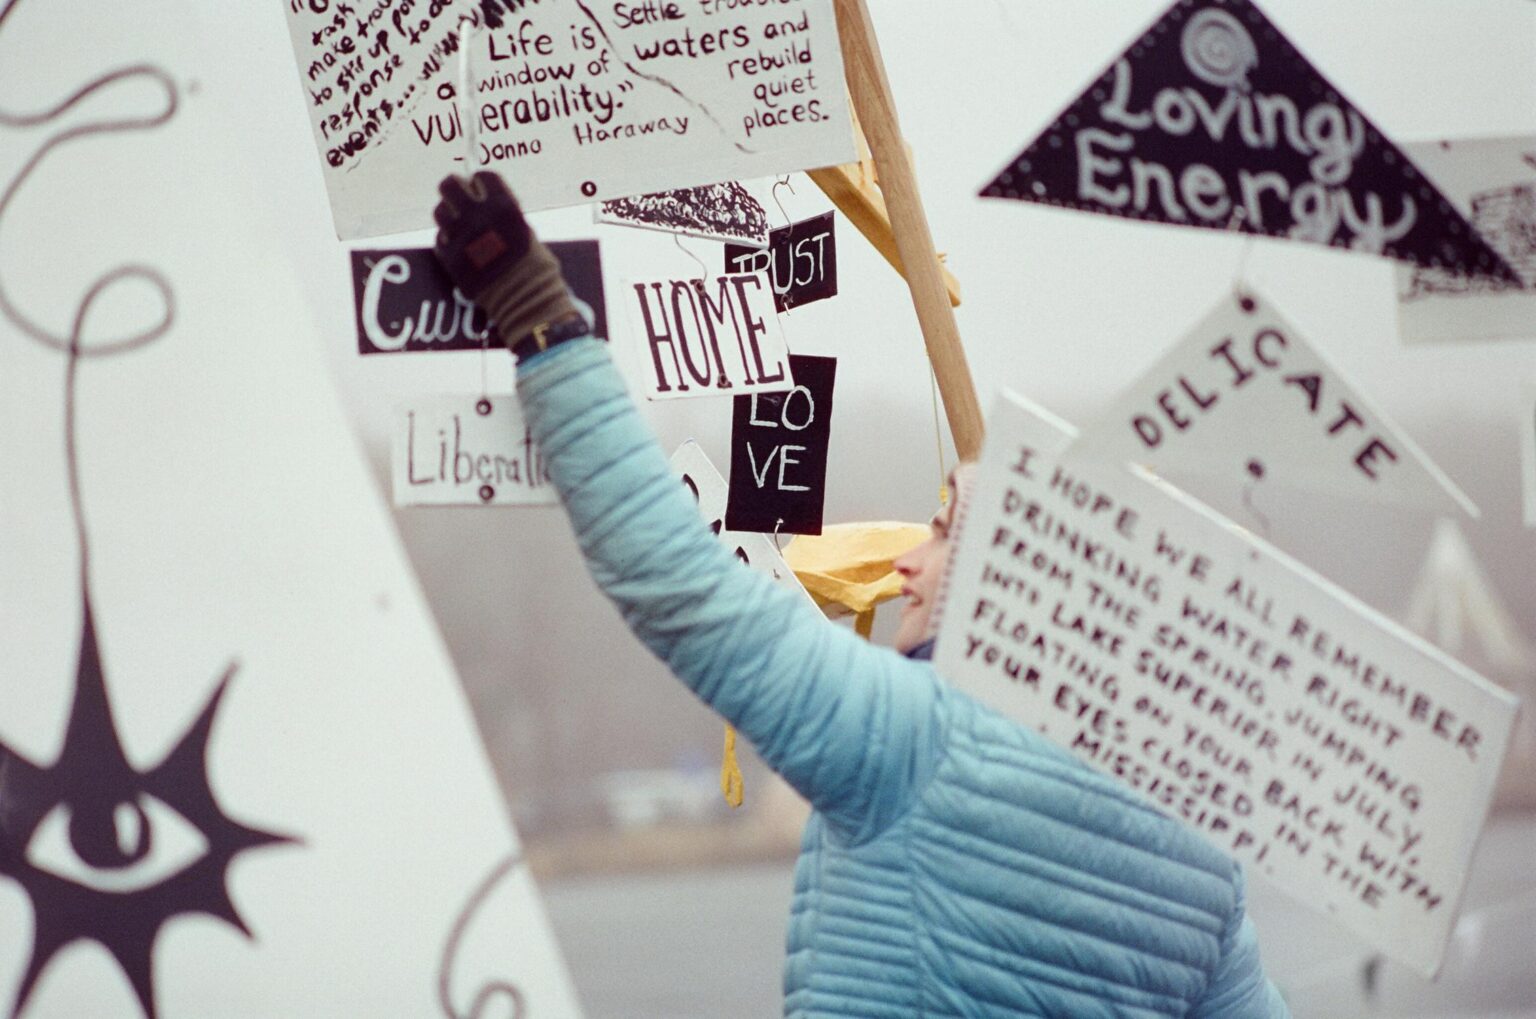 task
make trou
to stir up po
response to de
events...
Life is
a window of
vulnerability."
Donna Haraway
Settle troubled
waters and
rebuild
quiet
places.
Loving
Energy
TRUST
HOME
Cur
LO
VE
Liberati
DELICATE
I HOPE WE ALL REMEMBER
DRINKING WATER RIGHT
FROM THE SPRING, JUMPING
INTO LAKE SUPERIOR IN JULY,
FLOATING ON YOUR BACK WITH
YOUR EYES CLOSED IN THE
MISSISSIPPI.